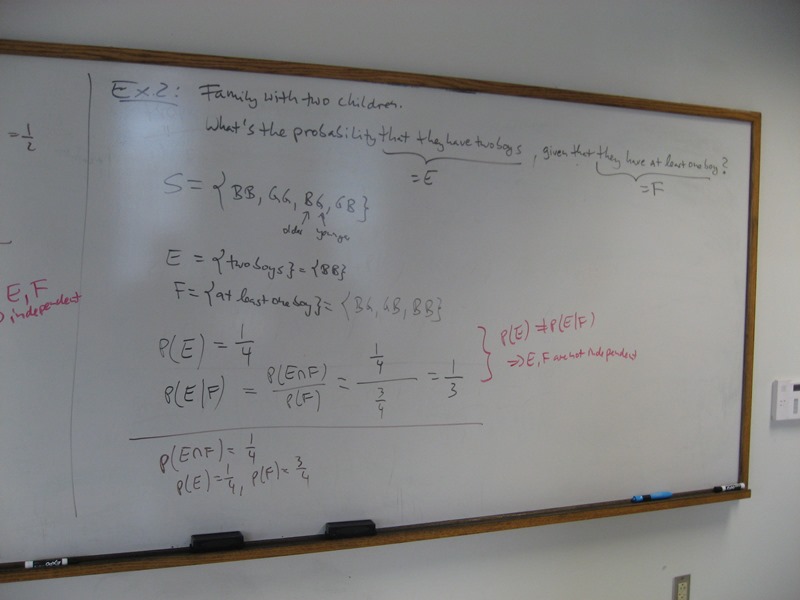 = 1/2
E, F
independent
Ex.2: Family with two children.
What's the probability that they have two boys, given that they have at least one boy?
= E
= F
S = {BB, GG, BG, GB}
older younger
E = {two boys} = {BB}
F = {at least one boy} = {BG, GB, BB}
P(E) = 1/4
P(E|F) = P(E∩F)/P(F) = (1/4)/(3/4) = 1/3
P(E) ≠ P(E|F)
⇒ E, F are not independent
P(E∩F) = 1/4
P(E) = 1/4, P(F) = 3/4